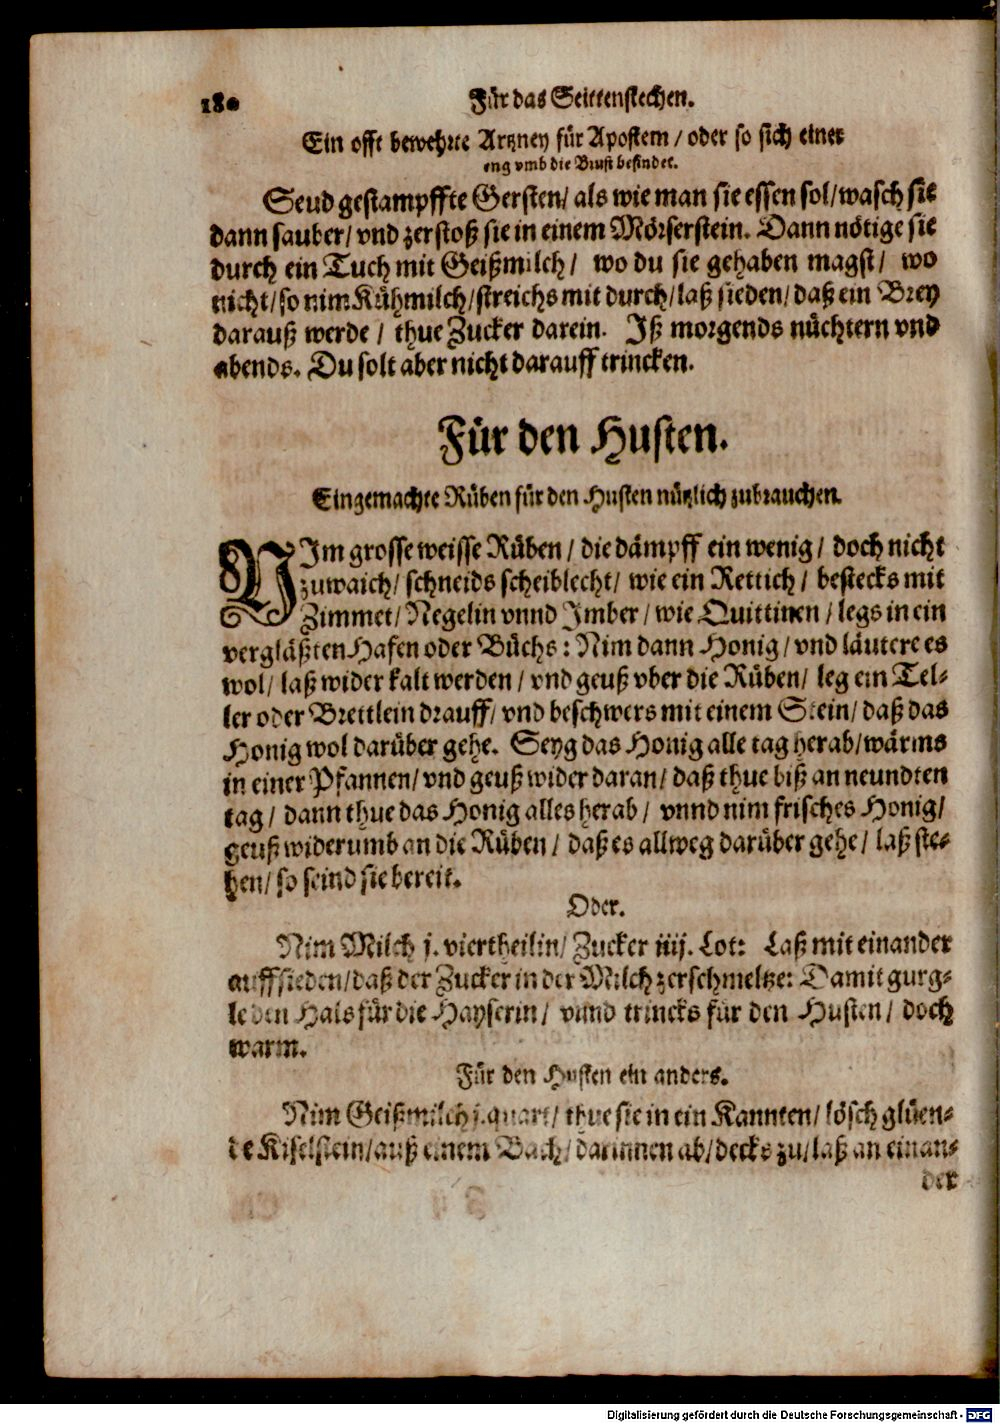 180
Für das Seittenstechen.
Ein offt bewehrte Artzney für Apostem / oder so sich einer
eng vmb die Brust befindet.
Seud gestampffte Gersten / als wie man sie essen sol / wasch sie
dann sauber / vnd zerstoß sie in einem Mörserstein. Dann nötige sie
durch ein Tuch mit Geißmilch / wo du sie gehaben magst / wo
nicht / so nim Kühmilch / streichs mit durch / laß sieden / daß ein Brey
darauß werde / thue Zucker darein. Iß morgends nüchtern vnd
abends. Du solt aber nicht darauff trincken.
Für den Husten.
Eingemachte Rüben für den Husten nützlich zubrauchen.
NIm grosse weisse Rüben / die dämpff ein wenig / doch nicht
zuwaich / schneids scheiblecht / wie ein Rettich / bestecks mit
Zimmet / Negelin vnnd Imber / wie Quittinen / legs in ein
vergläßten Hafen oder Büchs : Nim dann Honig / vnd läutere es
wol / laß wider kalt werden / vnd geuß vber die Rüben / leg ein Tel-
ler oder Brettlein drauff / vnd beschwers mit einem Stein / daß das
Honig wol darüber gehe. Seyg das Honig alle tag herab / wärms
in einer Pfannen / vnd geuß wider daran / daß thue biß an neundten
tag / dann thue das Honig alles herab / vnnd nim frisches Honig /
geuß widerumb an die Rüben / daß es allweg darüber gehe / laß ste-
hen / so seind sie bereit.
Oder.
Nim Milch j. viertheilin / Zucker iiij. Lot: Laß mit einander
auffsieden / daß der Zucker in der Milch zerschmeltze: Damit gurg-
le den Hals für die Hayserin / vnnd trincks für den Husten / doch
warm.
Für den Husten ein anders.
Nim Geißmilch j. quart / thue sie in ein Kannten / lösch glüen-
de Kiselstein / auß einem Bach / darinnen ab / decks zu / laß an einan-
der
Digitalisierung gefördert durch die Deutsche Forschungsgemeinschaft - DFG